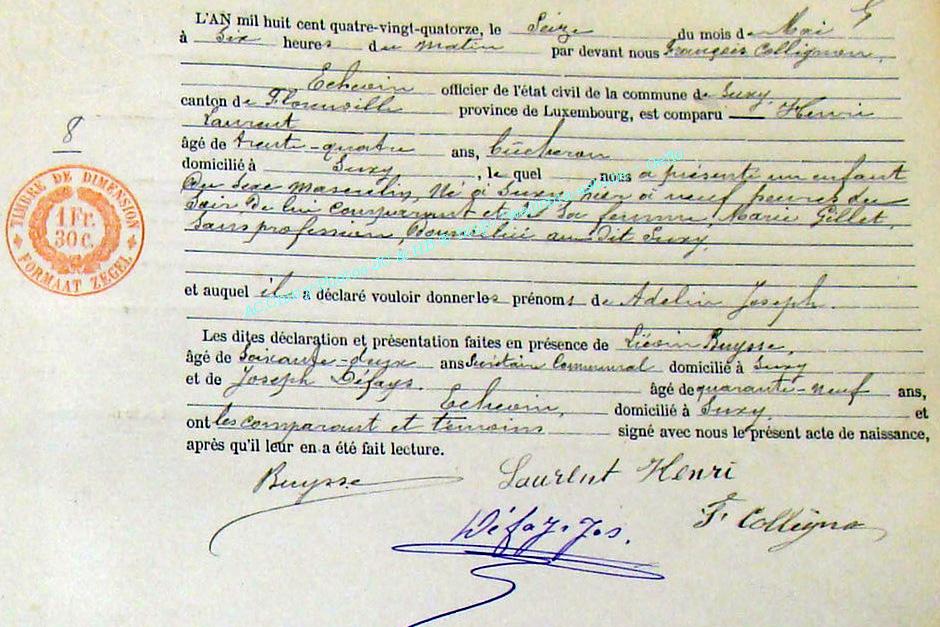 L'AN mil huit cent quatre-vingt-quatorze, le Seize du mois de Mai
à Six heures du matin par devant nous François Collignon,
Echevin officier de l'état civil de la commune de Suxy,
canton de Florenville province de Luxembourg, est comparu Henri
Laurent
8
âgé de trente-quatre ans, bûcheron
domicilié à Suxy, le quel nous a présenté un enfant
du sexe masculin, né à Suxy, hier à neuf heures du
soir de lui comparant et de sa femme, Marie Gillet,
sans profession, domiciliée au dit Suxy.
TIMBRE DE DIMENSION
1 Fr.
30 c.
FORMAAT ZEGEL
et auquel il a déclaré vouloir donner les prénoms de Adelin Joseph.
Les dites déclaration et présentation faites en présence de Liévin Buysse,
âgé de Soixante-deux ans Secrétaire Communal domicilié à Suxy
et de Joseph Défays. âgé de quarante-neuf ans,
Echevin, domicilié à Suxy, et
ont les comparant et témoins signé avec nous le présent acte de naissance,
après qu'il leur en a été fait lecture.
Buysse Laurent Henri
Défays Jos. F. Collignon